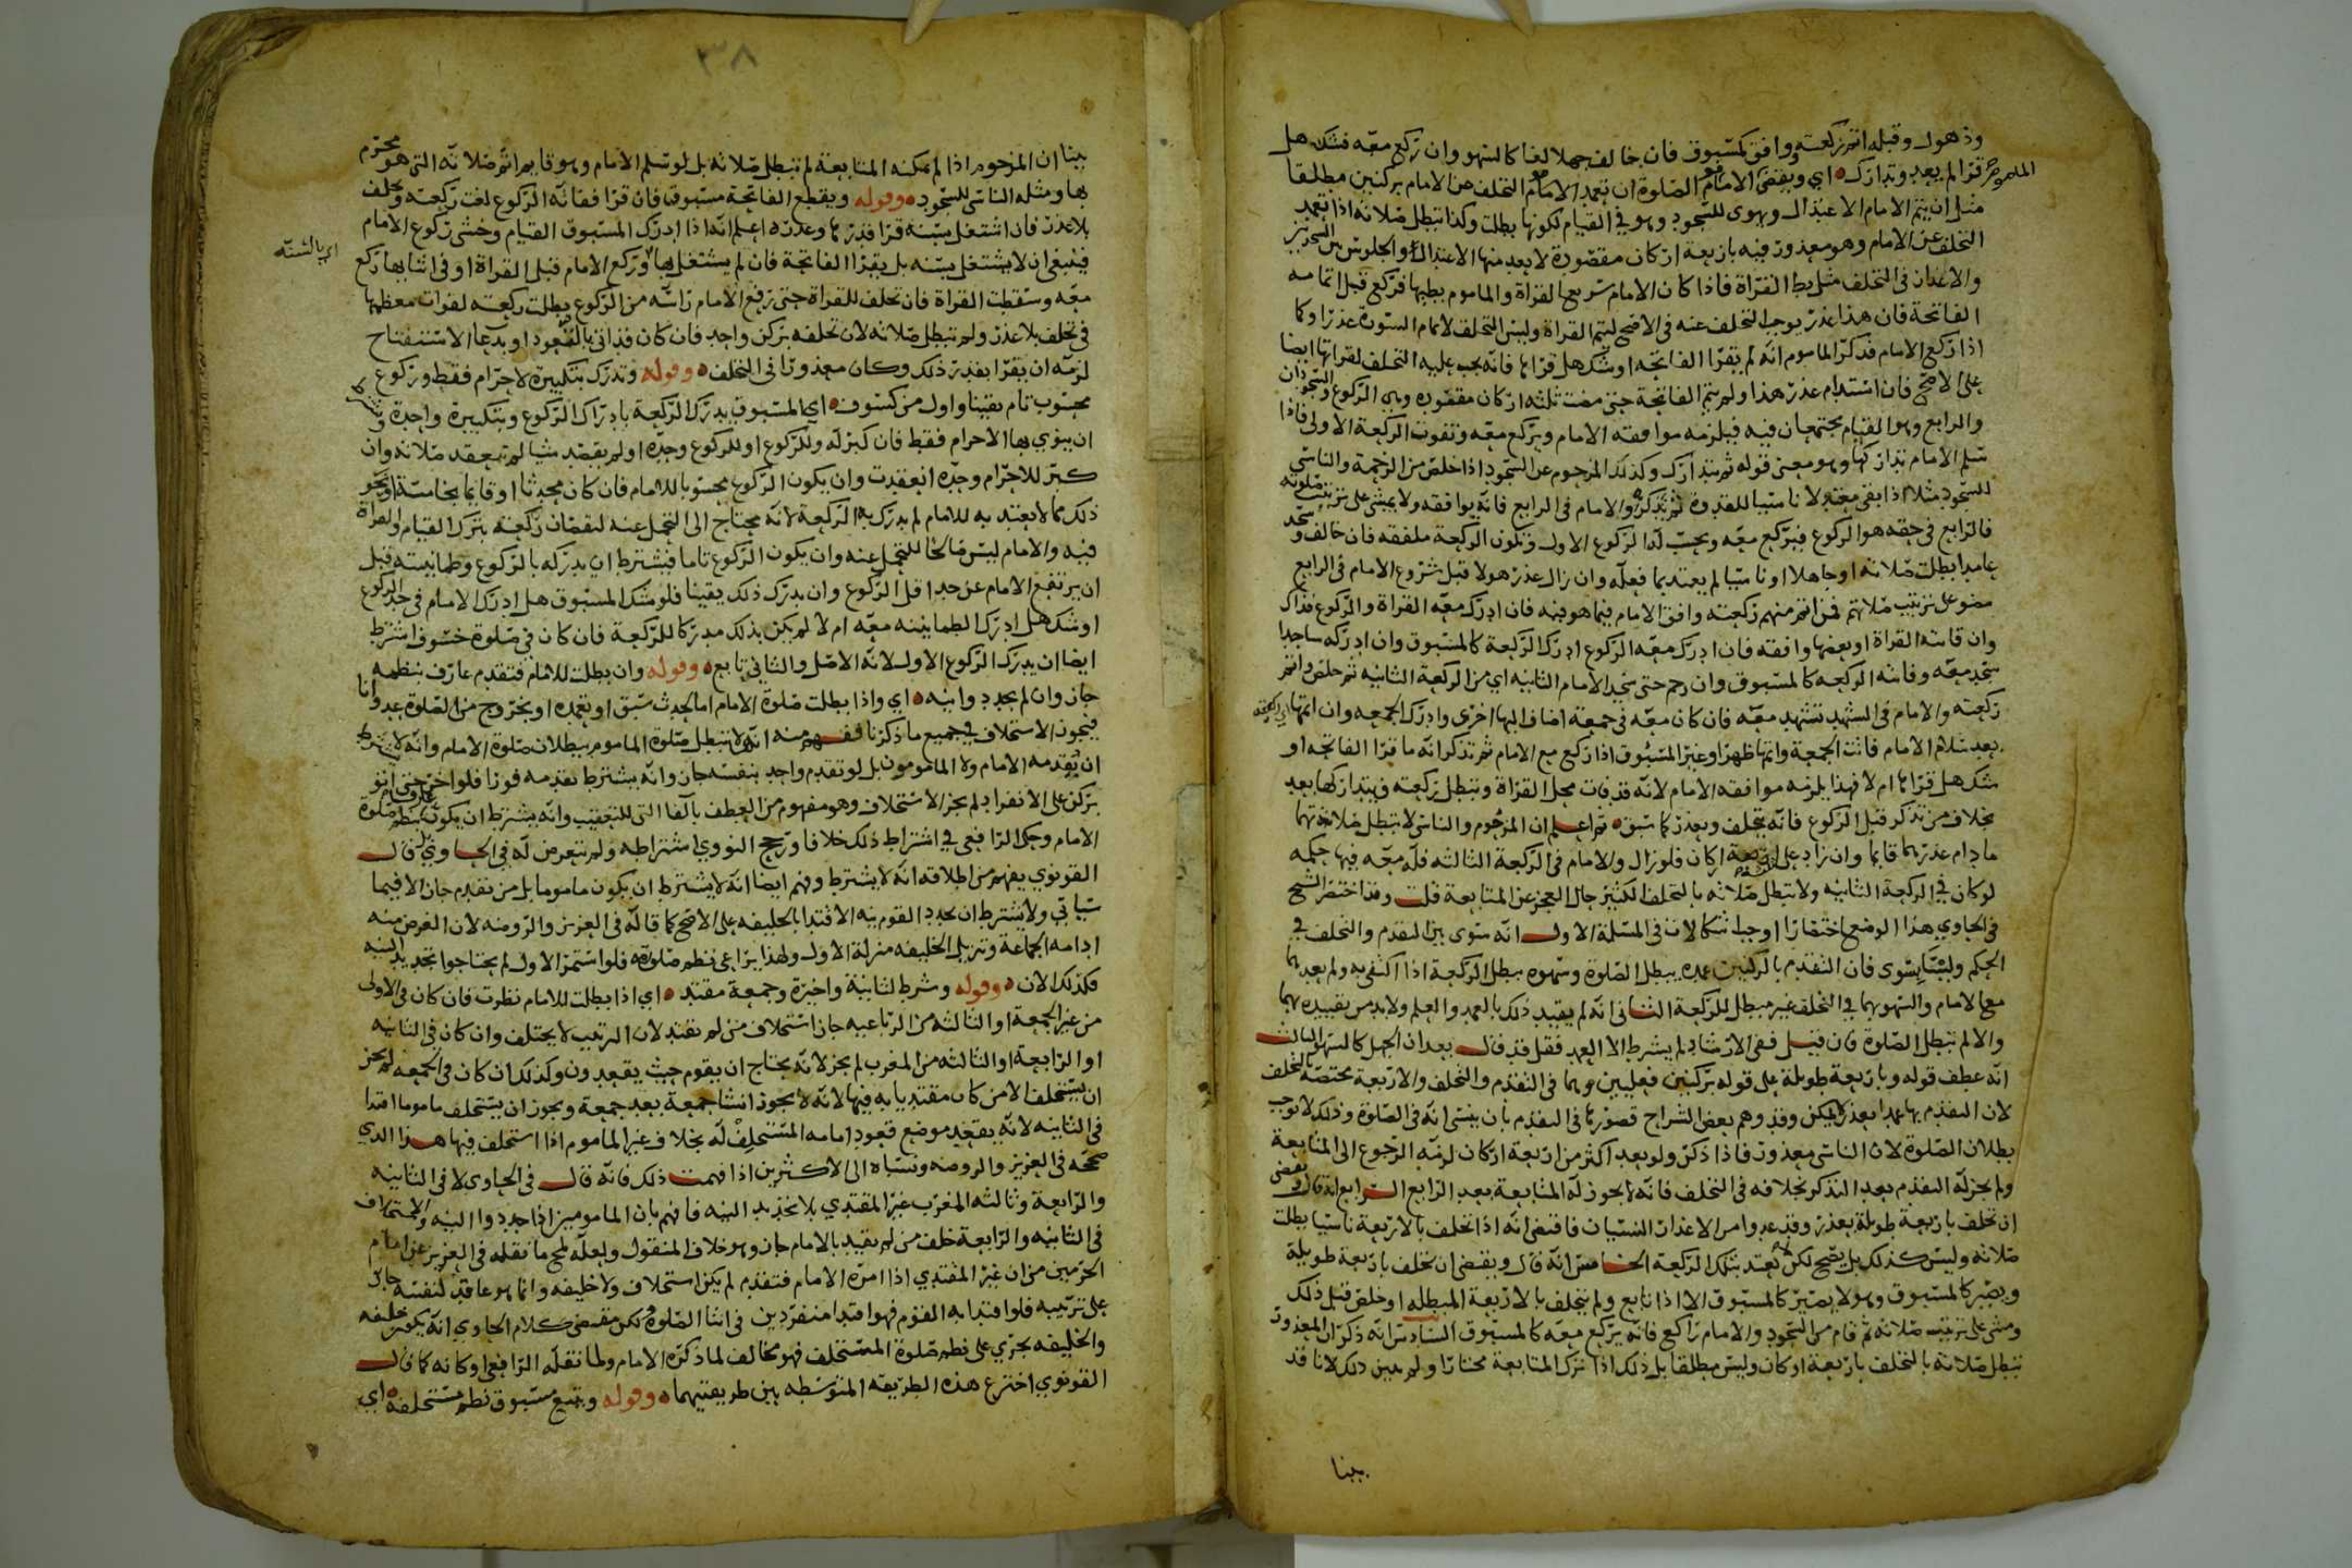 وذهول وقبله اتم ركعته ووافق كمسبوق فان خالف جهلا لغا كالسهو وان ركع معه فشك هل
قرا لم يعد وتدارك اي ويقضى الامام الصلوة ان تعمد الامام التخلف عن الامام بركنين مطلقا
مثل ان يتم الامام الاعتدال وهوى للسجود وهو في القيام لكونها بطلت وكذا تبطل صلاته اذا تعمد
التخلف عن الامام وهو معذور فيه باربعة اركان مقصورة لا يعد منها الاعتدال والجلوس بين السجدتين
والاعذار في التخلف مثل بطا القراة فاذا كان الامام سريع القراة والماموم بطيها فركع قبل اتمامه
الفاتحة فان هذا عذر يوجب التخلف عنه في الاصح ليتم القراة وليس التخلف لاتمام السورة عذرا وكما
اذا ركع الامام فذكر الماموم انه لم يقرا الفاتحه او شك هل قراها فانه يجب عليه التخلف لقراتها ايضا
على الاصح فان استدام عذر هذا ولم يتم الفاتحة حتى مضت ثلثه اركان مقصوره وهي الركوع والسجودان
والرابع وهو القيام مجتمعان فيه فيلزمه موافقه الامام ويركع معه وتفوت الركعة الاولى فاذا
سلم الامام تداركها وهو معنى قوله ثم تدارك وكذلك المزحوم عن السجود اذا خلص من الزحمة والناسي
للسجود مثلا اذا بقى معتدلا ناسيا للقدوة ثم تذكر والامام في الرابع فانه يوافقه ولا يمشى على ترتيب صلوته
فالرابع في حقه هو الركوع فيركع معه ويحسب له الركوع الاول وتكون الركعة ملفقه فان خالف وسجد
عامدا بطلت صلاته او جاهلا او ناسيا لم يعتد بما فعله وان زال عذر هولا قبل شروع الامام في الرابع
مضو على ترتيب صلاتهم فمن اتم منهم ركعته وافق الامام فيما هو فيه فان ادرك معه القراة والركوع فذاك
وان فاتته القراة او بعضها وافقه فان ادرك معه الركوع ادرك الركعة كالمسبوق وان ادركه ساجدا
سجد معه وفاتته الركعه كالمسبوق وان رحم حتى سجد الامام الثانيه اي من الركعة الثانيه ثم خلص واتم
ركعته والامام في التشهد تشهد معه فان كان معه في جمعة اضاف اليها اخرى وادرك الجمعه وان اتمها
بعد سلام الامام فاتت الجمعة واتمها ظهرا وغير المسبوق اذا ركع مع الامام ثم تذكر انه ما قرا الفاتحه او
شك هل قراها ام لا فهذا يلزمه موافقه الامام لانه قد فات محل القراة وتبطل ركعته فيتداركها بعد
بخلاف من تذكر قبل الركوع فانه يتخلف ويعذر كما سبق ثم اعلم ان المزحوم والناسي لا تبطل صلاتهما
ما دام عذرهما قايما وان زاد على اربعة اركان فلو زال والامام في الركعة الثالثه فله معه فيها حكمه
لو كان في الركعة الثانيه ولا تبطل صلاته بالتخلف الكثير حال العجز عن المتابعة قلت وقد اختصر الشيخ
في الحاوي هذا الموضع اختصارا اوجب اشكالات في المسئلة الاول انه سوى بين التقدم والتخلف في
الحكم وليسا بسوى فان التقدم بالركنين عمده يبطل الصلوة وسهوه يبطل الركعة اذا اكتفى به ولم يعدهما
مع الامام والسهو بهما في التخلف غير مبطل للركعة الثاني انه لم يقيد ذلك بالعمد والعلم ولا بد من تقييده بهما
والا لم تبطل الصلوة فان قيل ففى الارشاد لم يشرط الا العمد فقل قد قال بعد ان الجهل كالسهو الثالث
انه عطف قوله وباربعة طويلة على قوله بركنين فعليين وهما في التقدم والتخلف والاربعة مختصة بالتخلف
لان التقدم بها عمدا بعذر لا يمكن وقد وهم بعض الشراح قصورهما في التقدم بان ينسى انه في الصلوة وذلك لا يوجب
بطلان الصلوة لان الناسي معذور فاذا ذكر ولو بعد اكثر من اربعة اركان لزمه الرجوع الى المتابعة
ولم يجز له التقدم بعد التذكر بخلافه في التخلف فانه لا يجوز له المتابعة بعد الرابع الرابع انه قال
ان تخلف باربعة طويلة بعذر وقد عدوا من الاعذار النسيان فاقتضى انه اذا تخلف بالاربعة ناسيا بطلت
صلاته وليس كذلك بل يصح لكن لا يعتد بتلك الركعة الخامس انه قال ويقضى ان تخلف باربعة طويلة
ويصير كالمسبوق وهو لا يصير كالمسبوق الا اذا تابع ولم يتخلف بالاربعة المبطله او خلص قبل ذلك
ومشى على ترتيب صلاته ثم قام من السجود والامام راكع فانه يركع معه كالمسبوق السادس انه ذكر ان المعذور
تبطل صلاته بالتخلف باربعة اركان وليس مطلقا بل ذلك اذا ترك المتابعة مختارا ولم يبين ذلك لانا قد
بينا
٣٨
بينا ان المزحوم اذا لم يمكنه المتابعة لم تبطل صلاته بل لو سلم الامام وهو قايم اتم صلاته التي هو محترم
بها ومثله الناسي للسجود وقوله ويقطع الفاتحة مسبوق فان قرا ففاته الركوع لغت ركعته وتخلف
بلا عذر فان اشتغل بسنه قرا قدرها وعذره اعلم انه اذا ادرك المسبوق القيام وخشى ركوع الامام
فينبغي ان لا يشتغل بسنه بل يقرا الفاتحة فان لم يشتغل بها وركع الامام قبل القراة او في اثنائها ركع
اي بالسنه
معه وسقطت القراة فان تخلف للقراة حتى رفع الامام راسه من الركوع بطلت ركعته لفوات معظمها
في تخلف بلا عذر ولم تبطل صلاته لان تخلفه بركن واحد فان كان قد اتى بالتعوذ او بدعا الاستفتاح
لزمه ان يقرا بقدر ذلك وكان معذورا في التخلف وقوله وتدرك بتكبيرة لاحرام فقط وركوع
محسوب تام يقينا واول من كسوف اي المسبوق يدرك الركعة بادراك الركوع وبتكبيرة واحدة
ان ينوي بها الاحرام فقط فان كبر له وللركوع او للركوع وحده او لم يقصد شيا لم تنعقد صلاته وان
كبر للاحرام وحده انعقدت وان يكون الركوع محسوبا للامام فان كان محدثا او قايما بخامسة او نحو
ذلك مما لا يعتد به للامام لم يدرك به الركعة لانه يحتاج الى التحمل عنه لنقصان ركعته بترك القيام والقراة
فيه والامام ليس صالحا للتحمل عنه وان يكون الركوع تاما فيشترط ان يدركه بالركوع وطمانينته قبل
ان يرتفع الامام عن حد اقل الركوع وان يدرك ذلك يقينا فلو شك المسبوق هل ادرك الامام في حد الركوع
او شك هل ادرك الطمانينه معه ام لا لم يكن بذلك مدركا للركعة فان كان في صلوة خسوف اشترط
ايضا ان يدرك الركوع الاول لانه الاصل والثاني تابع وقوله وان بطلت للامام فتقدم عارف بنظمه
جاز وان لم يجدد وا نيه اي واذا بطلت صلوة الامام اما بحدث سبق او تعمده او بخروج من الصلوة عدوانا
فيجوز الاستخلاف في جميع ما ذكرنا ففهم منه انه لا تبطل صلوة الماموم ببطلان صلوة الامام وانه لا يشترط
ان يقدمه الامام ولا المامومون بل لو تقدم واحد بنفسه جاز وانه يشترط تقدمه فورا فلو اخر حتى اتو
بركن على الانفراد لم يجز الاستخلاف وهو مفهوم من العطف بالفا التي للتعقيب وانه يشترط ان يكون عارفا بنظم صلوة
الامام وحكى الرافعي في اشتراط ذلك خلافا ورجح النووي اشتراطه ولم يتعرض له في الحاوي قال
القونوي يفهم من اطلاقه انه لا يشترط وفهم ايضا انه لا يشترط ان يكون ماموما بل من تقدم جاز الا فيما
سياتي ولا يشترط ان يجدد القوم نيه الاقتدا بالخليفه على الاصح كما قاله في العزيز والروضه لان الغرض منه
ادامه الجماعة وتنزيل الخليفه منزلة الاول ولهذا يراعى نظم صلوته فلو استمر الاول لم يحتاجوا تجديد النيه
فكذلك الان وقوله وشرط لثانية واخيرة وجمعة مقتد اي اذا بطلت للامام نظرت فان كان في الاولى
من غير الجمعة او الثالثه من الرباعيه جاز استخلاف من لم يقتد لان الترتيب لا يختلف وان كان في الثانيه
او الرابعة او الثالثه من المغرب لم يجز لانه يحتاج ان يقوم حيث يقعدون وكذلك ان كان في الجمعه لم يجز
ان يستخلف الا من كان مقتديا به فيها لانه لا يجوز انشا جمعة بعد جمعة ويجوز ان يستخلف ماموما اقتدا
في الثانيه لانه يقعد موضع قعود امامه المستخلف له بخلاف غير الماموم اذا استخلف فيها هذا الذي
صححه في العزيز والروضه ونسباه الى الاكثرين اذا فهمت ذلك فانه قال في الحاوي لا في الثانيه
والرابعة وثالثه المغرب غير المقتدي بلا تجديد النيه فافهم بان المامومين اذا جددوا النيه والاستخلاف
في الثانيه والرابعة خلف من لم يقيد بالامام جاز وهو خلاف المنقول ولعله لمح ما نقله في العزيز عن امام
الحرمين من ان غير المقتدي اذا امره الامام فتقدم لم يكن استخلاف ولا خليفه وانما هو عاقد لنفسه جار
على ترتيبه فلو اقتدا به القوم فهو اقتدا منفردين في اثنا الصلوة لكن مقتضى كلام الحاوي انه يكون خليفه
والخليفه يجري على نظم صلوة المستخلف فهو مخالف لما ذكره الامام ولما نقله الرافعي وكانه كما قال
القونوي اخترع هذه الطريقه المتوسطه بين طريقتيهما وقوله ويتبع مسبوق نظم مستخلفه اي